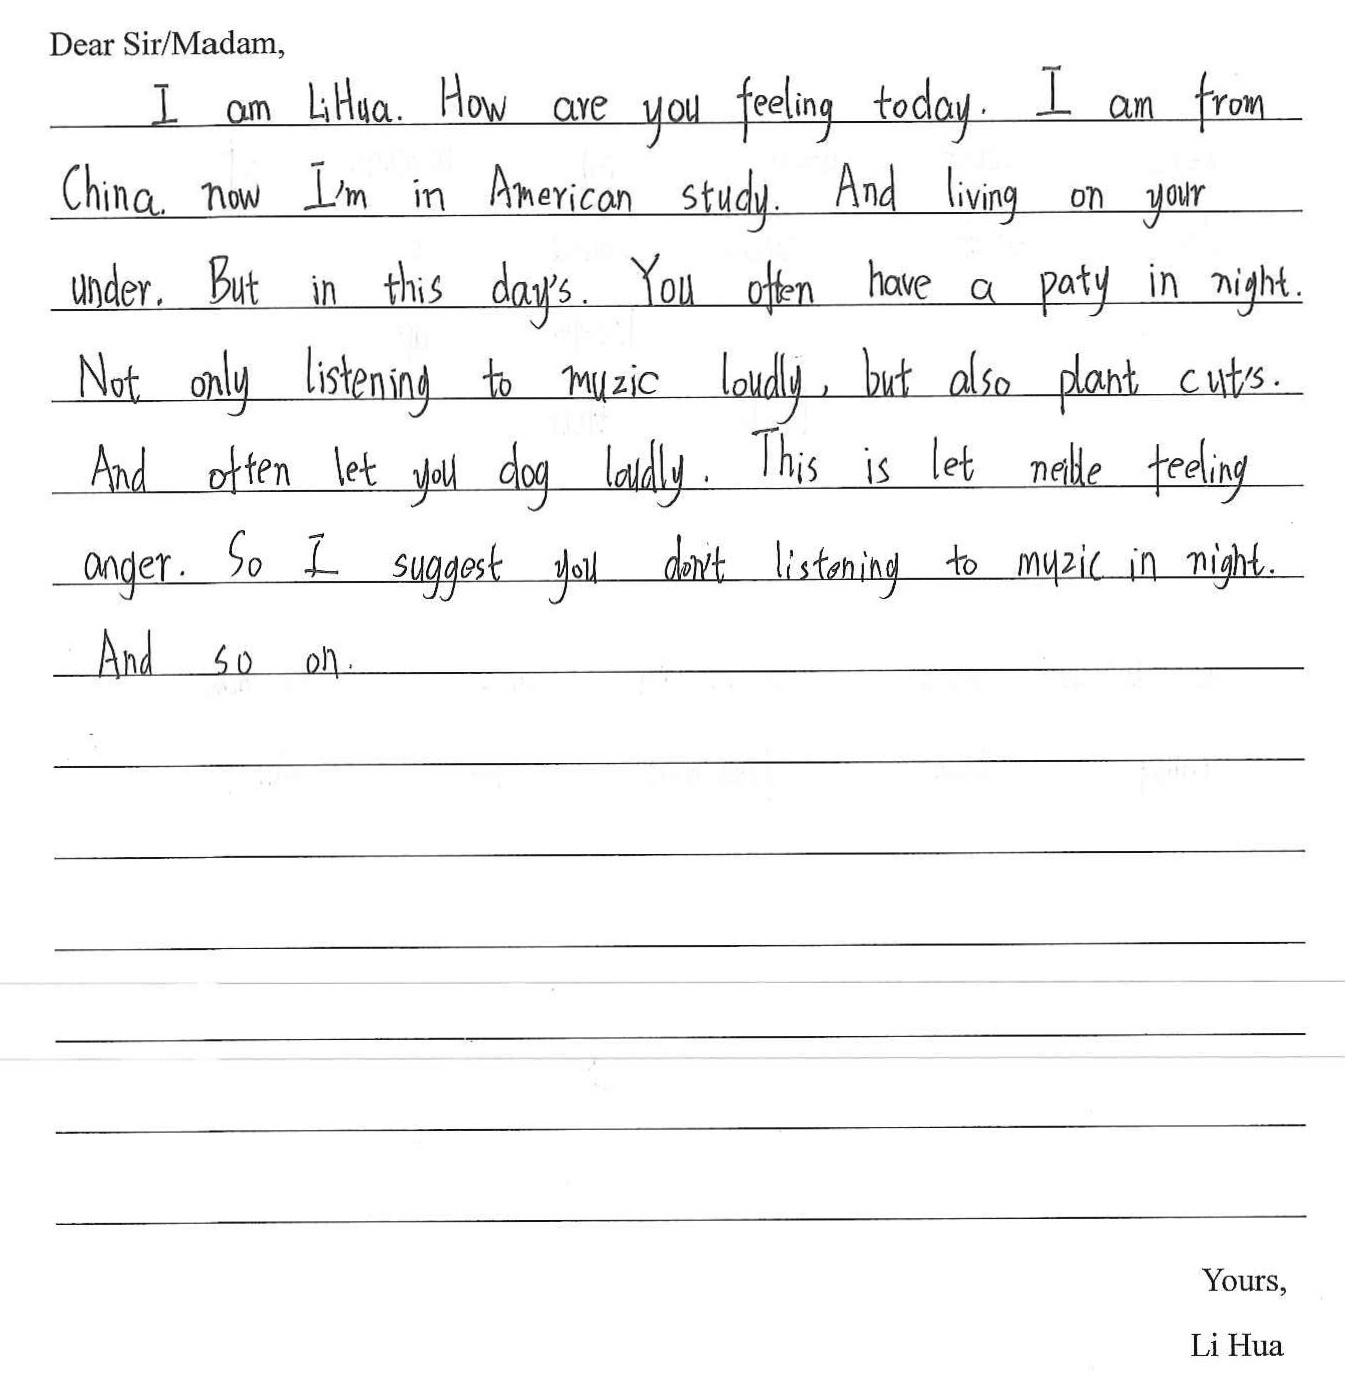 Dear Sir/Madam,
I am LiHua. How are you feeling today. I am from
China. now I'm in American study. And living on your
under. But in this day's. You often have a paty in night.
Not only listening to muzic loudly, but also plant cut's.
And often let you dog loudly. This is let neible feeling
anger. So I suggest you don't listening to muzic in night.
And so on.
Yours,
Li Hua